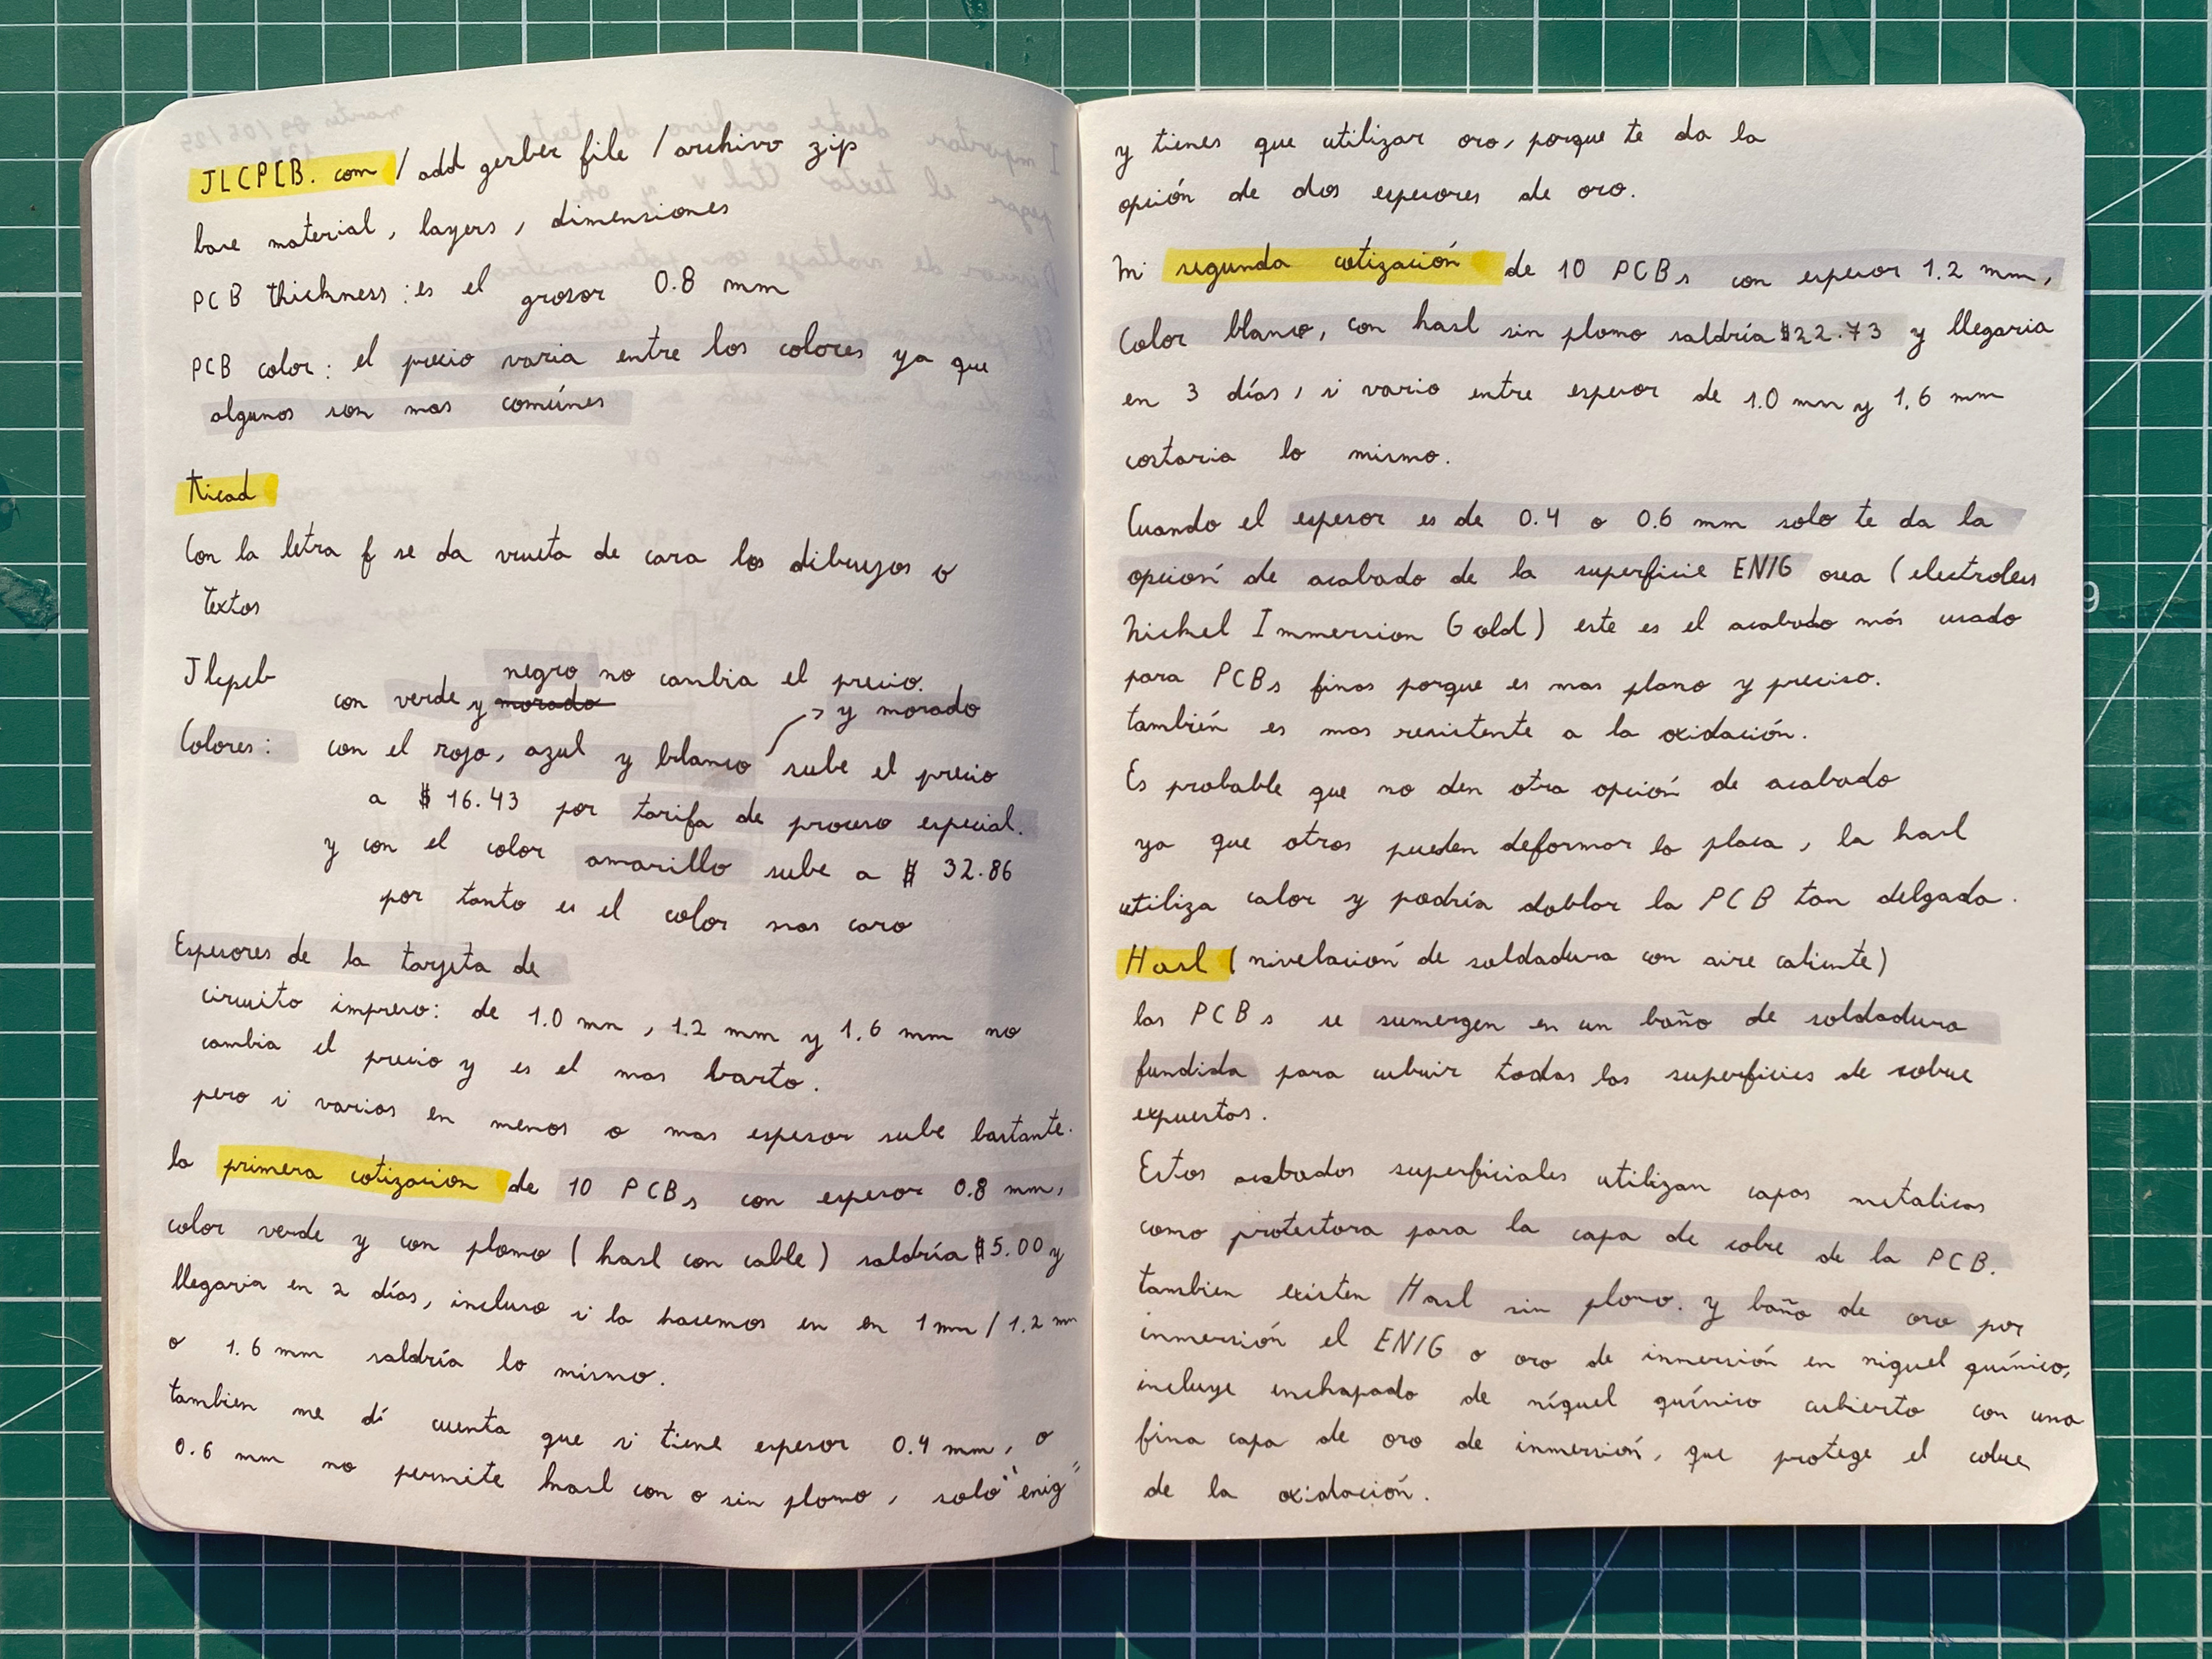 JLCPCB.com / add gerber file / archivo zip
base material, layers, dimensiones
PCB thickness: es el grosor 0.8 mm
PCB color: el precio varia entre los colores ya que
algunos son mas comúnes
Kicad
Con la letra f se da vuelta de cara los dibujos o
textos
Jlcpcb
negro no cambia el precio.
con verde y morado
y morado
Colores: con el rojo, azul y blanco sube el precio
a $ 16.43 por tarifa de proceso especial.
y con el color amarillo sube a $ 32.86
por tanto es el color mas caro
Espesores de la tarjeta de
circuito impreso: de 1.0 mm, 1.2 mm y 1.6 mm no
cambia el precio y es el mas barto.
pero si varias en menos o mas espesor sube bastante.
la primera cotizacion de 10 PCBs con espesor 0.8 mm,
color verde y con plomo (hasl con cable) saldría $5.00 y
llegaria en 2 días, incluso si la hacemos en en 1mm / 1.2 mm
o 1.6 mm saldría lo mismo.
tambien me dí cuenta que si tiene espesor 0.4 mm, o
0.6 mm no permite hasl con o sin plomo, solo "enig"
y tienes que utilizar oro, porque te da la
opción de dos espesores de oro.
Mi segunda cotización de 10 PCBs con espesor 1.2 mm,
Color blanco, con hasl sin plomo saldría $22.73 y llegaria
en 3 días, si vario entre espesor de 1.0 mm y 1.6 mm
costaria lo mismo.
Cuando el espesor es de 0.4 o 0.6 mm solo te da la
opción de acabado de la superficie ENIG osea (electroless
Nickel Immersion Gold) este es el acabado más usado
para PCBs finas porque es mas plano y preciso.
también es mas resistente a la oxidación.
Es probable que no den otra opción de acabado
ya que otros pueden deformar la placa, la hasl
utiliza calor y podría doblar la PCB tan delgada.
Hasl (nivelación de soldadura con aire caliente)
las PCBs se sumergen en un baño de soldadura
fundida para cubrir todas las superficies de cobre
expuestas.
Estos acabados superficiales utilizan capas metalicas
como protectora para la capa de cobre de la PCB.
tambien existen Hasl sin plomo. y baño de oro por
inmersión el ENIG o oro de inmersión en niquel químico,
incluye enchapado de níquel químico cubierto con una
fina capa de oro de inmersión, que protege el cobre
de la oxidación.
9